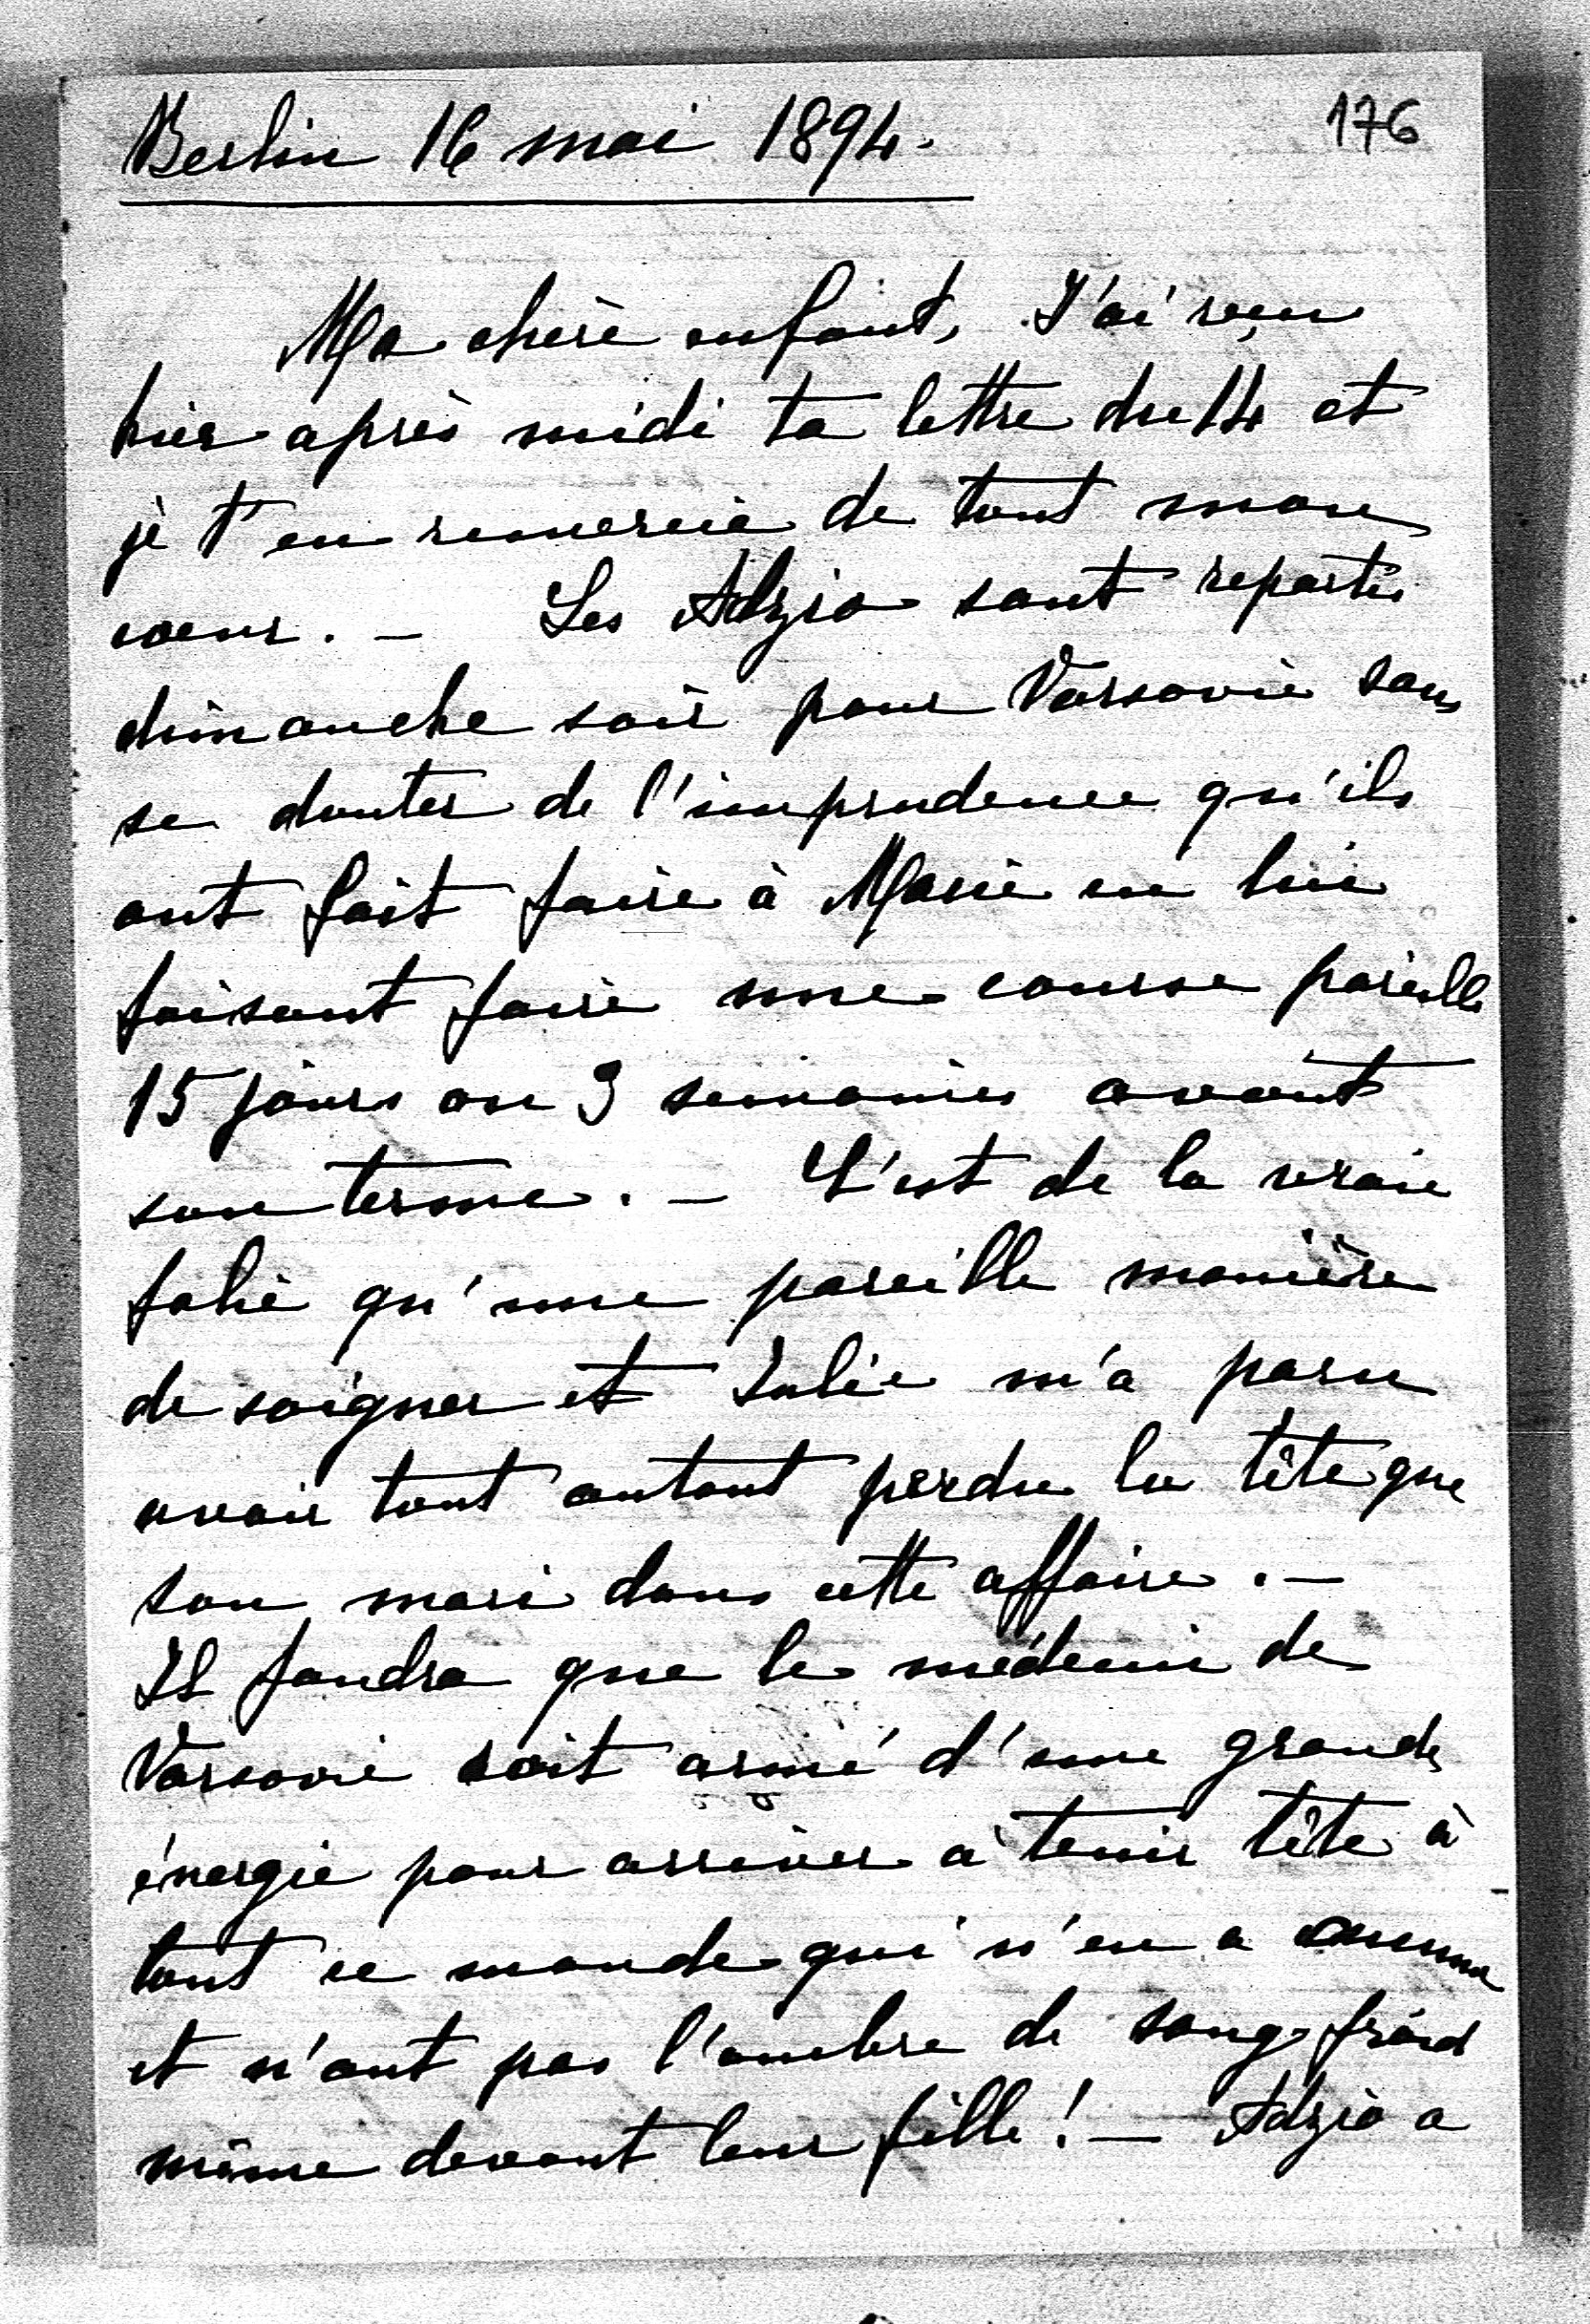 Berlin 16 mai 1894.
176
Ma chère enfant, J'ai reçu
hier après midi ta lettre du 14 et
je t'en remercie de tout mon
coeur. — Les Adzio sont repartis
dimanche soir pour Varsovie sans
se douter de l'imprudence qu'ils
ont fait faire à Marie en lui
faisant faire une course pareille
15 jours ou 3 semaines avant
son terme. — C'est de la vraie
folie qu'une pareille manière
de soigner et Julie m'a paru
avoir tout autant perdu la tête que
son mari dans cette affaire. —
Il faudra que le médecin de
Varsovie soit armé d'une grande
énergie pour arriver à tenir tête à
tout ce monde qui n'en a aucune
et n'ont pas l'ombre de sang froid
même devant leur fille! — Adzio a